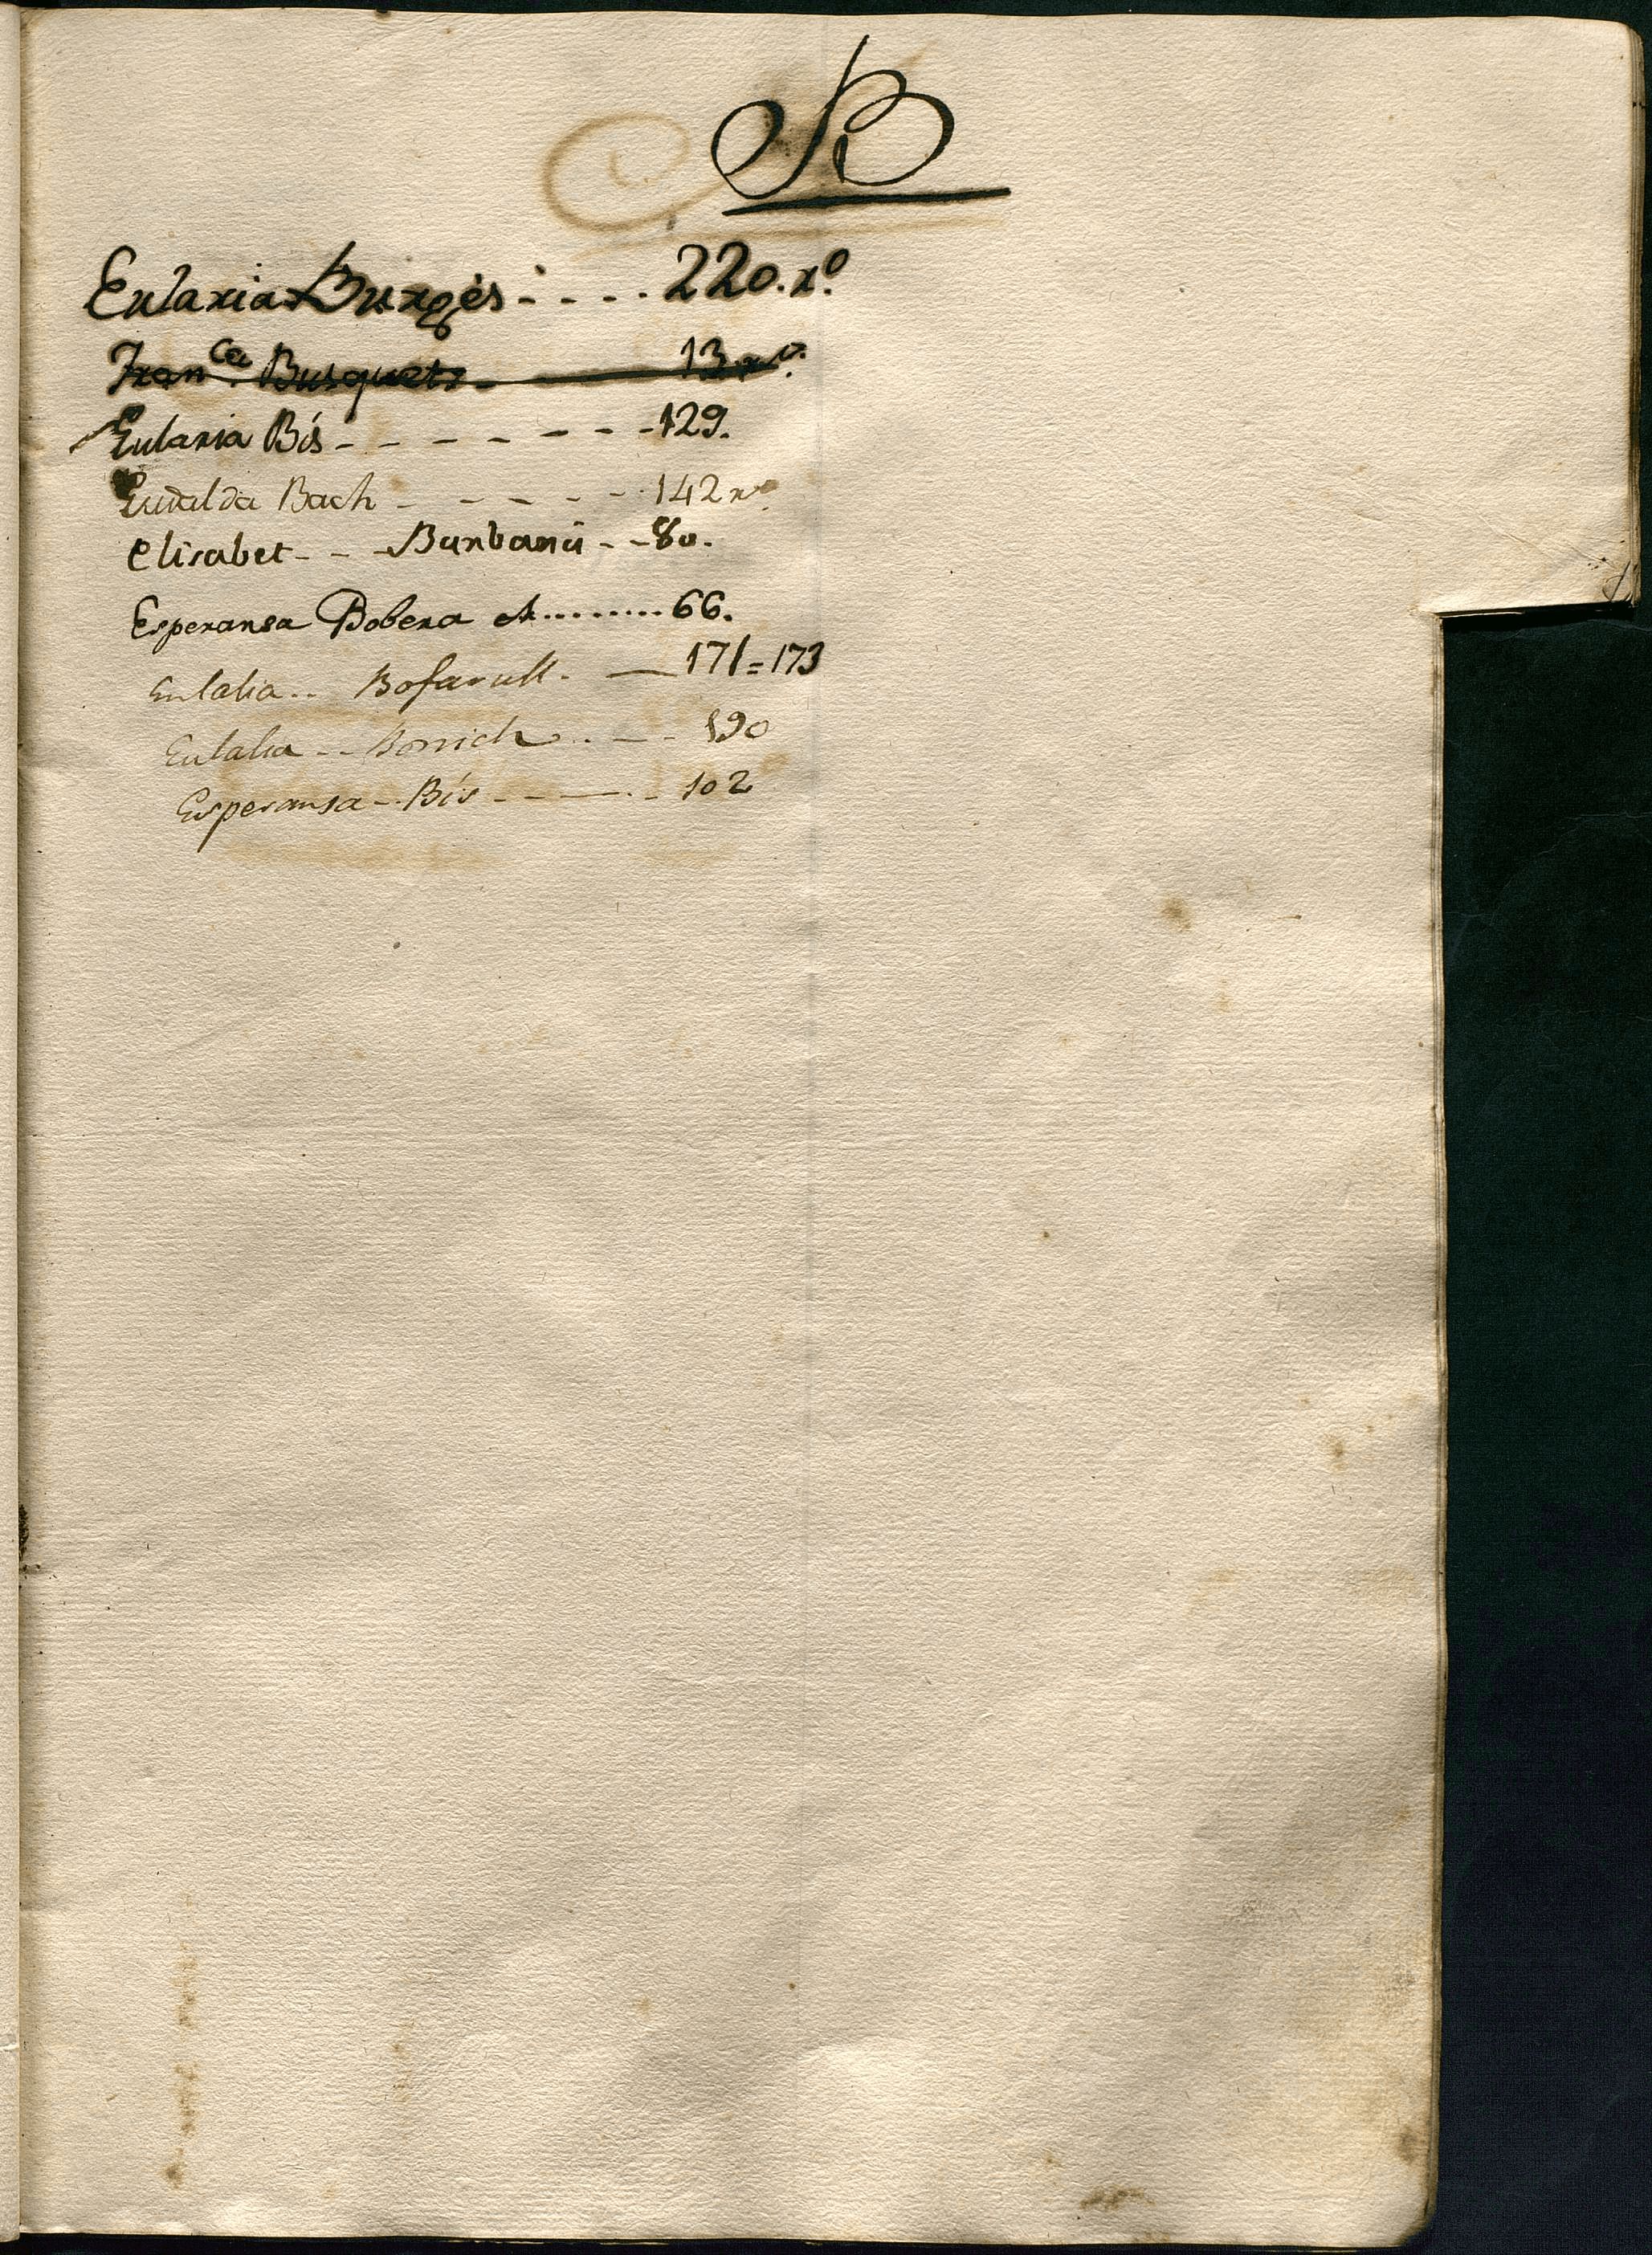 B
Eularia Burgés - . - . . 220. rº
Fran.ca Busquets - 13. rº.
Eularia Bís - - - - - - - - 129.
Eudalda Bach - - - - - - 142 rº
Elisabet - - - Burbanú - - 80.
Esperansa Bobera ........ 66.
Eulalia .. Bofarull. — 171 = 173
Eulalia - - Borrich .. — - 190
Esperansa - . Bís - - — . - 102